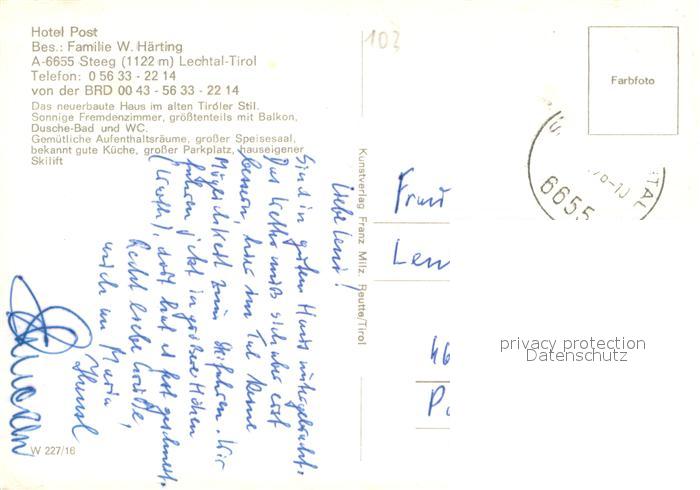 Hotel Post
Bes.: Familie W. Härting
A-6655 Steeg (1122 m) Lechtal-Tirol
Telefon: 0 56 33 - 22 14
von der BRD 00 43 - 56 33 - 22 14
Das neuerbaute Haus im alten Tiroler Stil.
Sonnige Fremdenzimmer, größtenteils mit Balkon,
Dusche-Bad und WC.
Gemütliche Aufenthaltsräume, großer Speisesaal,
bekannt gute Küche, großer Parkplatz, hauseigener
Skilift
103
Farbfoto
6655
TAL
Liebe Leni!
Sind in gutem Haus untergebracht.
Das Wetter muß sich aber erst
bessern, hier im Tal keine
Möglichkeit zum Skifahren. Wir
fahren jetzt in größere Höhen
dort hat es fest geschneit.
Recht liebe Grüße,
auch an Maria
Hansl
Frau
Len
46
Kunstverlag Franz Milz, Reutte/Tirol
W 227/16
privacy protection
Datenschutz